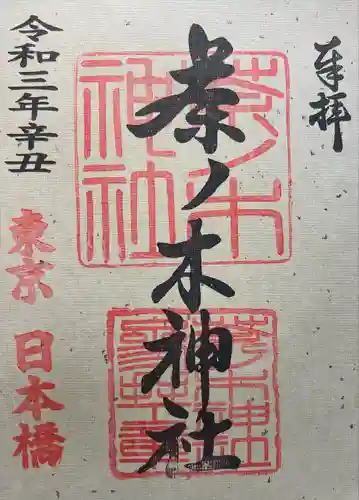 奉拝
茶ノ木神社
令和三年辛丑
東京 日本橋
茶ノ木神社